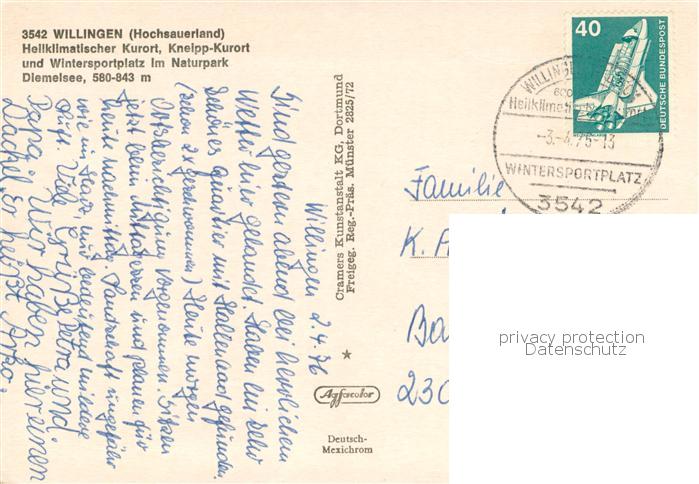 3542 WILLINGEN (Hochsauerland)
Heilklimatischer Kurort, Kneipp-Kurort
und Wintersportplatz im Naturpark
Diemelsee, 580-843 m
Willingen 2.4.76
Sind gestern abend bei herrlichem
Wetter hier gelandet. Haben ein sehr
schönes Quartier mit Hallenbad gefunden.
(schon 2x geschwommen) Heute morgen
Ortsbesichtigung vorgenommen. Sitzen
jetzt beim Mittagessen und planen für
heute nachmittag. Landschaft ungefähr
wie im Harz, nur bedeutend mildere
Luft. Viele Grüße Petra und
Papa. Wir haben hier einen
Dackel. Er heißt Arko.
Cramers Kunstanstalt KG. Dortmund
Freigeg. Reg.-Präs. Münster 2825/72
Agfacolor
Deutsch-
Mexichrom
40
DEUTSCHE BUNDESPOST
WILLIN
600
Heilklimati
-3.-4.76-13
WINTERSPORTPLATZ
3542
Familie
K.
Ba
230
privacy protection
Datenschutz